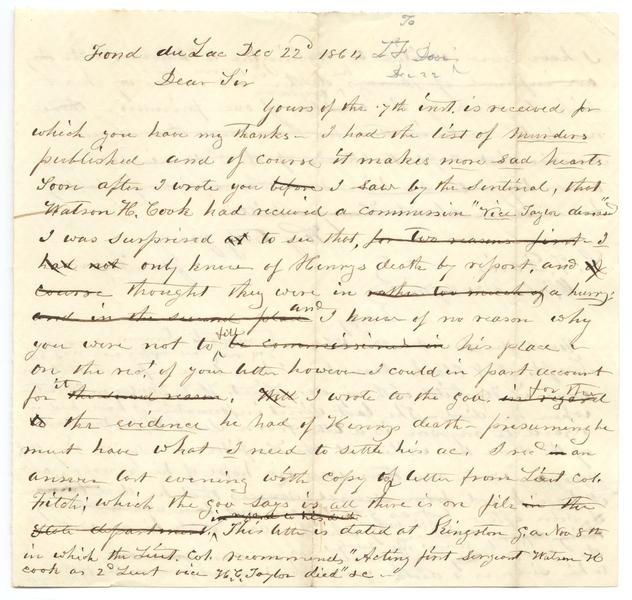 To
Fond du Lac Dec 22d 1864 L F
Dec 22
Dear Sir
Yours of the 7th inst. is received for
which you have my thanks - I had the list of murders
published and of course it makes more sad hearts
Soon after I wrote you before I saw by the Sentinal, that
Watson H. Cook had received a commission "vice Taylor deseased"
I was surprised at to see that, for two reasons first - I
had not only knew of Henrys death by report, and of
course thought they were in rather too much of a hurry;
and in the second place and I knew of no reason why
you were not to fill be commissioned in his place -
on the rect. of your letter however I could in part account
for it the second reason. I wrote to the gov. in regard for the
to the evidence he had of Henrys death - presuming he
must have what I need to settle his ac. I recd in an
answer last evening with copy of letter from Lieut Col.
Fitch; which the gov says is all there is on file in the
State department in regard to his death. This letter is dated at Kingston Ga Nov 8th
in which the Lieut. Col. recommends, "Acting first Sergeant Watson H
Cook as 2d Lieut vice H.C. Taylor died" &c -